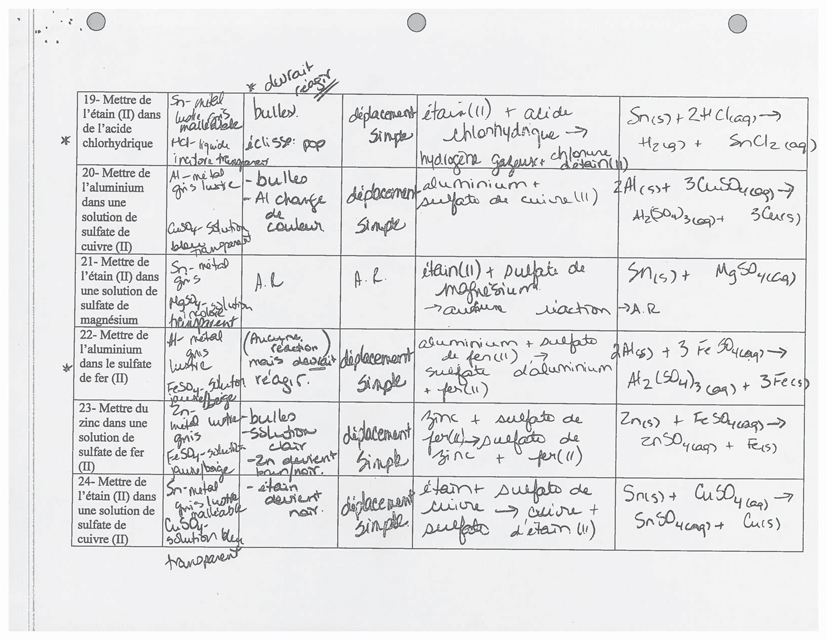 * devrait
réagir
*
19- Mettre de
l'étain (II) dans
de l'acide
chlorhydrique
Sn- métal
lustre gris
malléable
HCl- liquide
incolore transparent
bulles.
éclisse: pop
déplacement
simple
étain(II) + acide
chlorhydrique →
hydrogène gazeux + chlorure
d'étain(II)
Sn(s) + 2HCl(aq) →
H2(g) + SnCl2(aq)
20- Mettre de
l'aluminium
dans une
solution de
sulfate de
cuivre (II)
Al- métal
gris lustre
CuSO4- solution
bleu transparent
- bulles
- Al change
de
couleur
déplacement
simple
aluminium +
sulfate de cuivre (II)
2Al(s) + 3CuSO4(aq) →
Al2(SO4)3(aq) + 3Cu(s)
21- Mettre de
l'étain (II) dans
une solution de
sulfate de
magnésium
Sn- métal
gris
MgSO4- solution
incolore
transparent
A.R
A.R.
étain(II) + sulfate de
magnésium
→ aucune réaction
Sn(s) + MgSO4(aq)
→ A.R
*
22- Mettre de
l'aluminium
dans le sulfate
de fer (II)
Al- métal
gris
lustre
FeSO4- solution
jaune/beige
(Aucune
réaction)
mais devrait
réagir.
déplacement
simple
aluminium + sulfate
de fer(II) →
sulfate d'aluminium
+ fer(II)
2Al(s) + 3 FeSO4(aq) →
Al2(SO4)3(aq) + 3Fe(s)
23- Mettre du
zinc dans une
solution de
sulfate de fer
(II)
Zn-
métal lustre
gris
FeSO4- solution
jaune/beige
- bulles
- solution
clair
- Zn devient
brun/noir.
déplacement
simple
zinc + sulfate de
fer(II) → sulfate de
zinc + fer(II)
Zn(s) + FeSO4(aq) →
ZnSO4(aq) + Fe(s)
24- Mettre de
l'étain (II) dans
une solution de
sulfate de
cuivre (II)
Sn- métal
gris lustre
malléable
CuSO4-
solution bleu
transparent
- étain
devient
noir.
déplacement
simple
étain + sulfate de
cuivre → cuivre +
sulfate d'étain(II)
Sn(s) + CuSO4(aq) →
SnSO4(aq) + Cu(s)